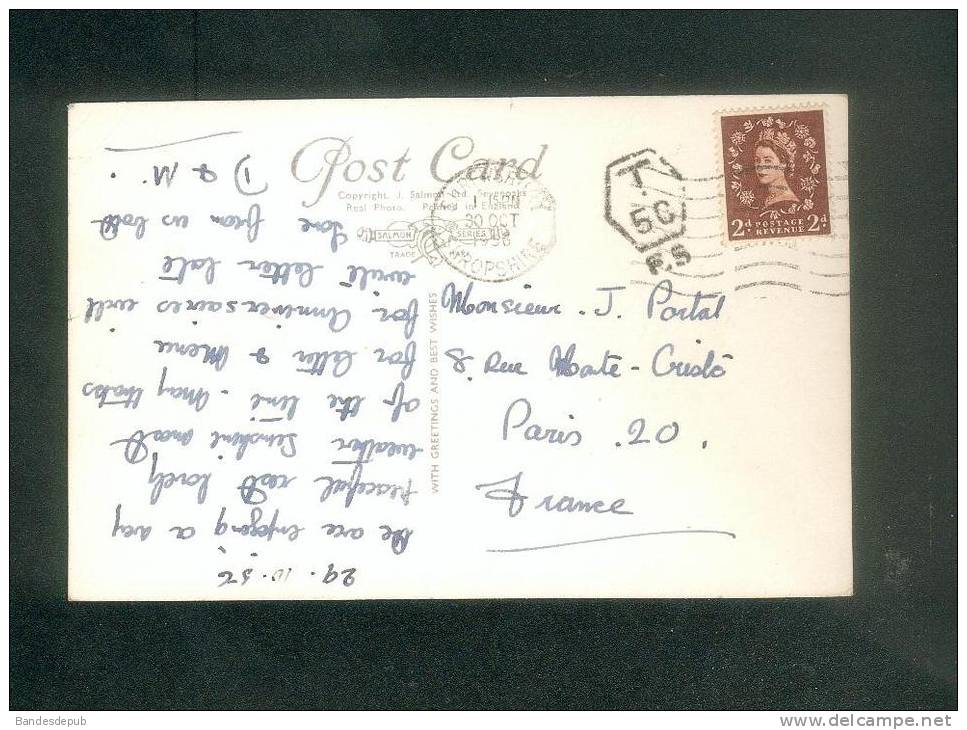 Post Card
Copyright. J. Salmon Ltd. Sevenoaks
Real Photo. Printed in England
SALMON SERIES
TRADE MARK
30 OCT
1956
SHROPSHIRE
T
5C
2d POSTAGE REVENUE 2d
WITH GREETINGS AND BEST WISHES
29.10.56
We are enjoying a very
peaceful rest lovely
weather sunshine most
of the time. Many thanks
for letter & Menu
for Anniversaires will
write letter late
Love from us both
D & M.
Monsieur. J. Portal
8. Rue Monte-Cristo
Paris .20.
France
Bandesdepub
www.delcampe.net